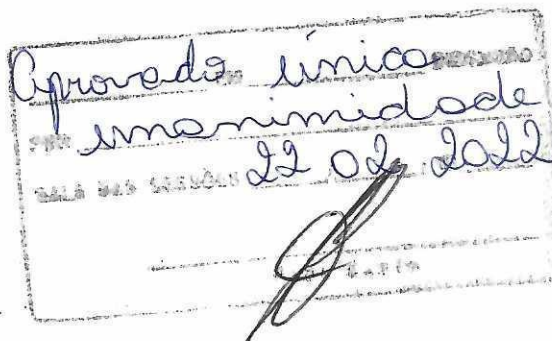 Aprovado única
unanimidade
SALA DAS SESSÕES 22 02 2022